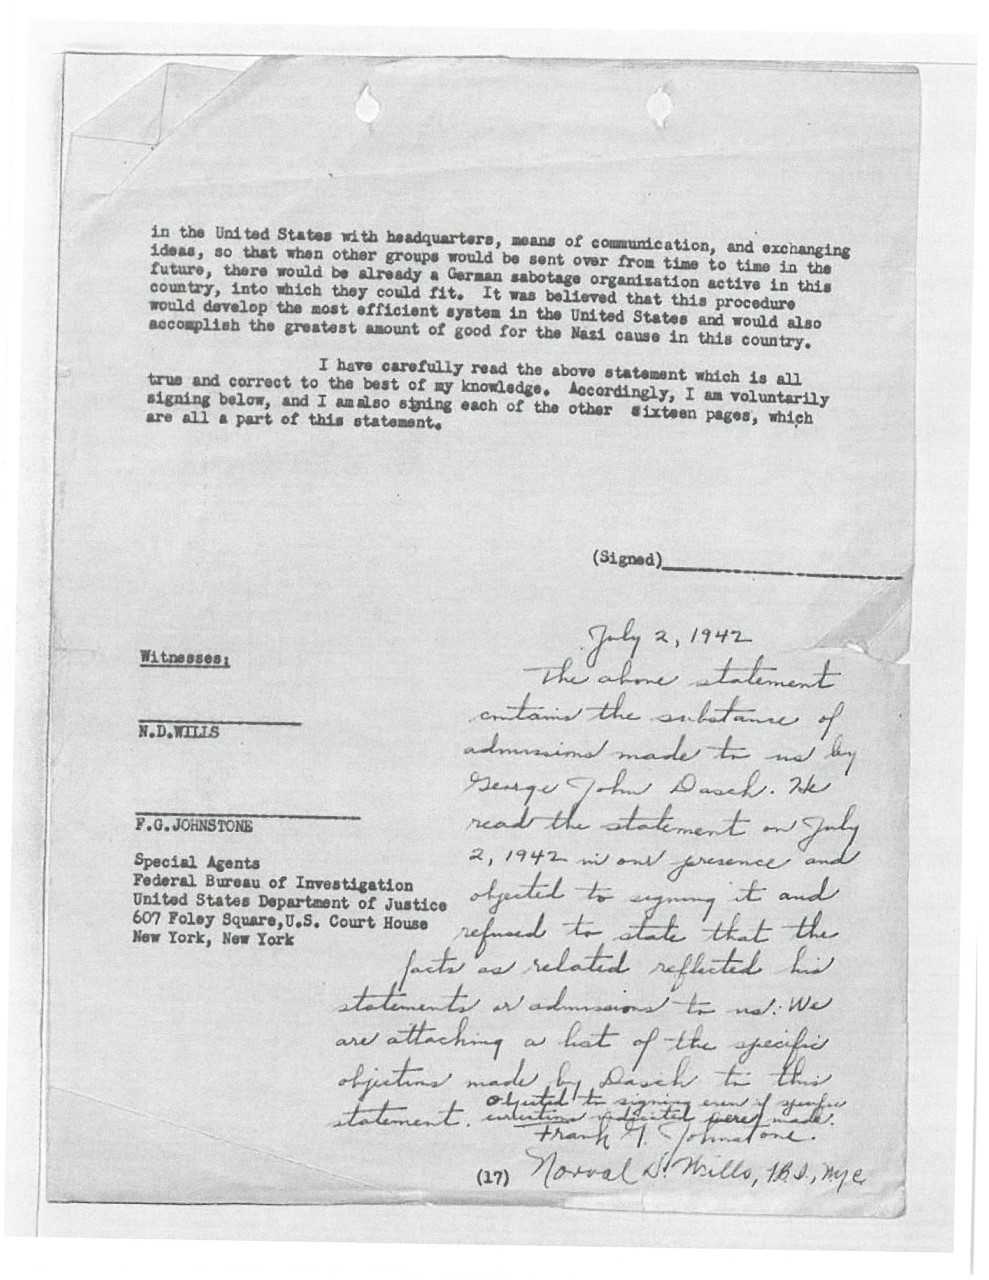 in the United States with headquarters, means of communication, and exchanging
ideas, so that when other groups would be sent over from time to time in the
future, there would be already a German sabotage organization active in this
country, into which they could fit. It was believed that this procedure
would develop the most efficient system in the United States and would also
accomplish the greatest amount of good for the Nazi cause in this country.
I have carefully read the above statement which is all
true and correct to the best of my knowledge. Accordingly, I am voluntarily
signing below, and I amalso signing each of the other sixteen pages, which
are all a part of this statement.
(Signed)
Witnesses:
N.D.WILLS
F.G.JOHNSTONE
Special Agents
Federal Bureau of Investigation
United States Department of Justice
607 Foley Square,U.S. Court House
New York, New York
July 2, 1942
The above statement
contains the substance of
admissions made to us by
George John Dasch. He
read the statement on July
2, 1942 in our presence and
objected to signing it and
refused to state that the
facts as related reflected his
statements or admissions to us. We
are attaching a list of the specific
objections made by Dasch to this
statement. objected to signing even if specific
corrections indicated were made.
Frank G. Johnstone.
Norval D. Wills, FBI, NYC
(17)